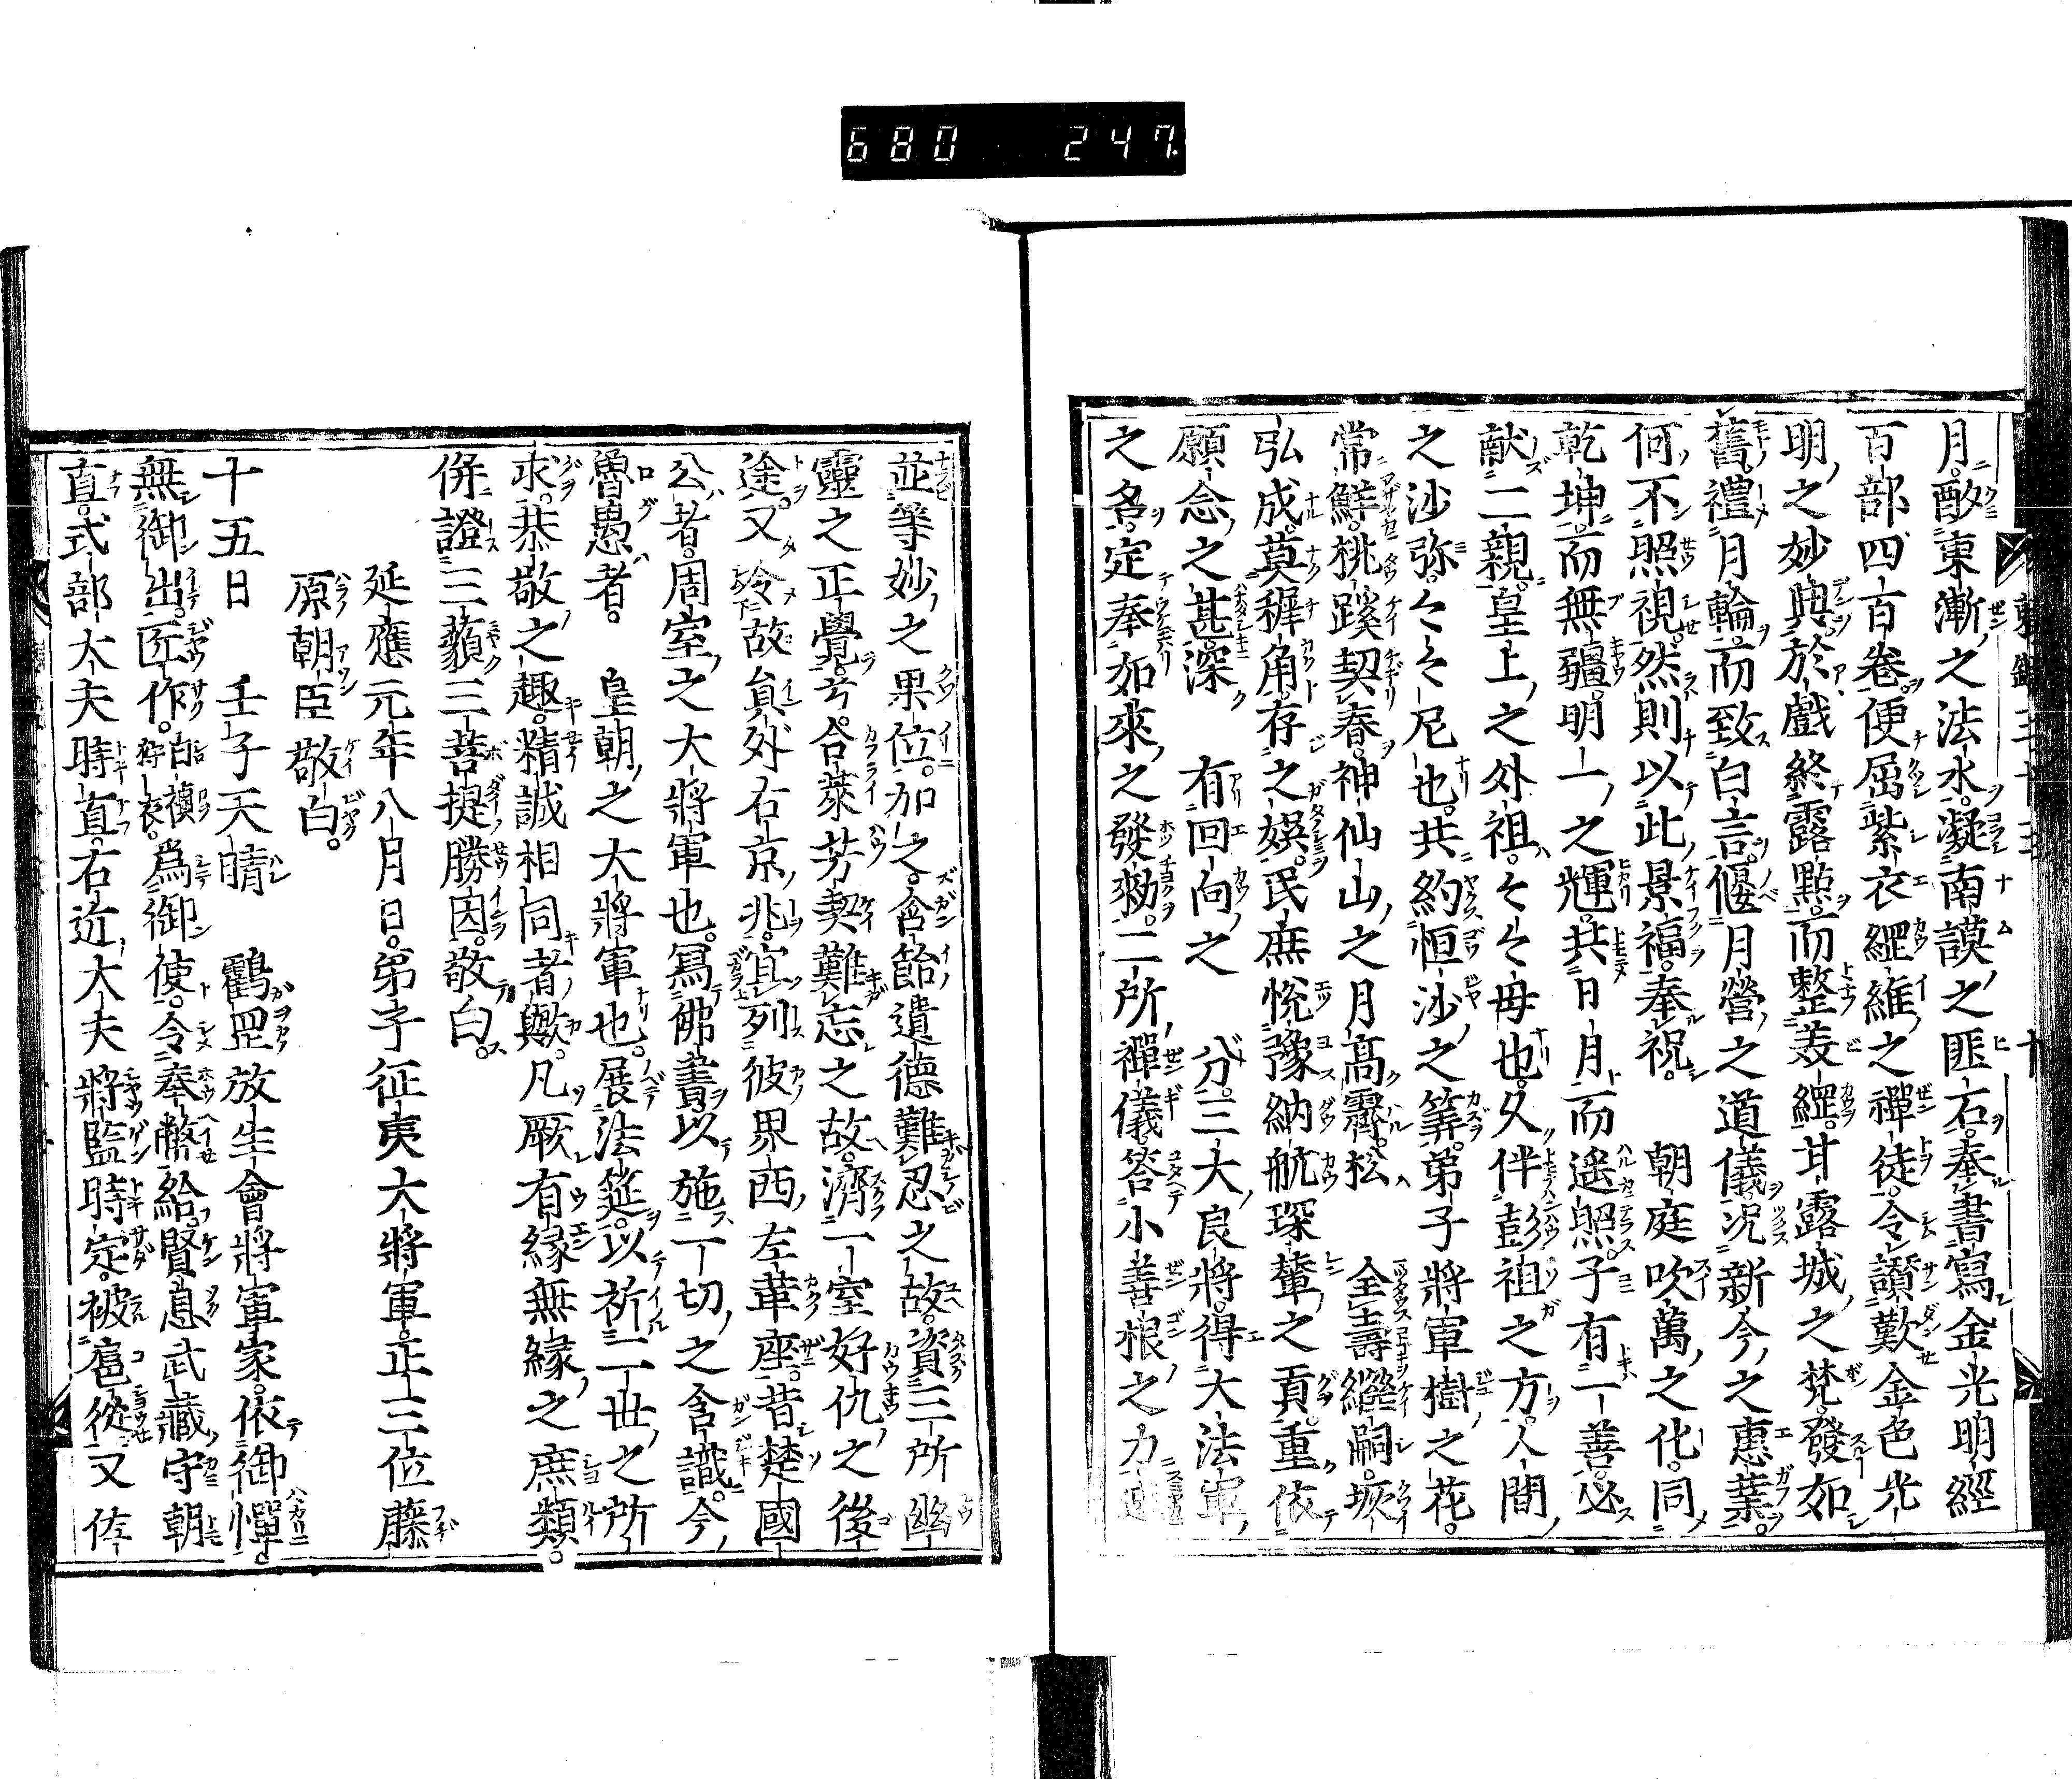 680 247
月酘東漸之法水。凝南謨之匪石。奉書寫金光明經
百部四百卷。便屈紫衣緇維之禪徒。令讃歎金色光
明之妙典。於戲終露點。而整羨繦。甘露城之梵。發如
舊禮月輪。而致白言。偃月營之道儀。况新今之惠葉。
何不照視。然則以此景福。奉祝。 朝庭吹萬之化。同
乾坤而無疆。明一之輝。共日月而遥照。子有一善。必
献二親。皇上之外祖。々々母也。久伴彭祖之方。人間
之沙弥。々々尼也。共約恒沙之筭。弟子將軍樹之花。
常鮮。桃蹊契春。神仙山之月高霽。松 全壽繼嗣。垓
弘成。莫穉角。存之娯。民庶悦豫納航琛輦之貢。重依
願念之甚深 有回向之 分。三大良將。得大法軍
之名。定奉如來之發勅。二所禪儀。答小善根之力
並等妙之果位。加之。含飴遺德難忍之故。資三所幽
靈之正覺。兮。合藂芳契難忘之故。濟一室好仇之後
途。又令故貟外右京兆。宜列彼界西左華座。昔楚國
公者。周室之大將軍也。冩佛書以施一切之含識。今
魯愚者。 皇朝之大將軍也。展法筵。以祈二世之所
求。恭敬之趣。精誠相同者歟。凡厥有縁無縁之庶類。
併證三藐三菩提勝因。敬白。
延應元年八月日。弟子征夷大將軍。正三位藤
原朝臣敬白。
十五日 壬子天晴 鸖罡放生會將軍家。依御憚。
無御出。匠作。白襖狩衣。爲御使。令奉幣給。賢息武藏守朝
直。式部大夫時直。右近大夫將監時定。被扈從。又佐